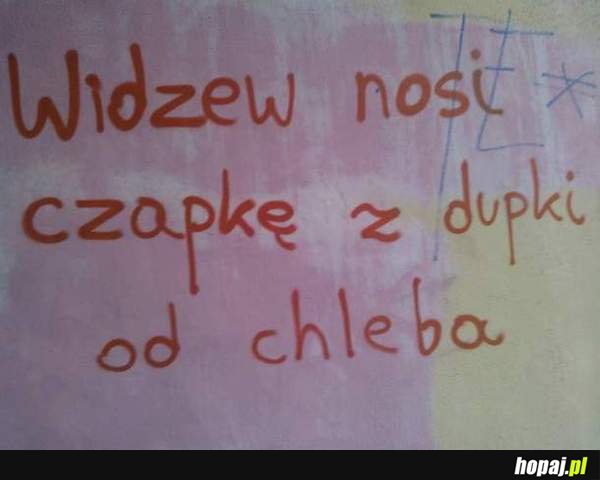 Widzew nosi
czapkę z dupki
od chleba
hopaj.pl